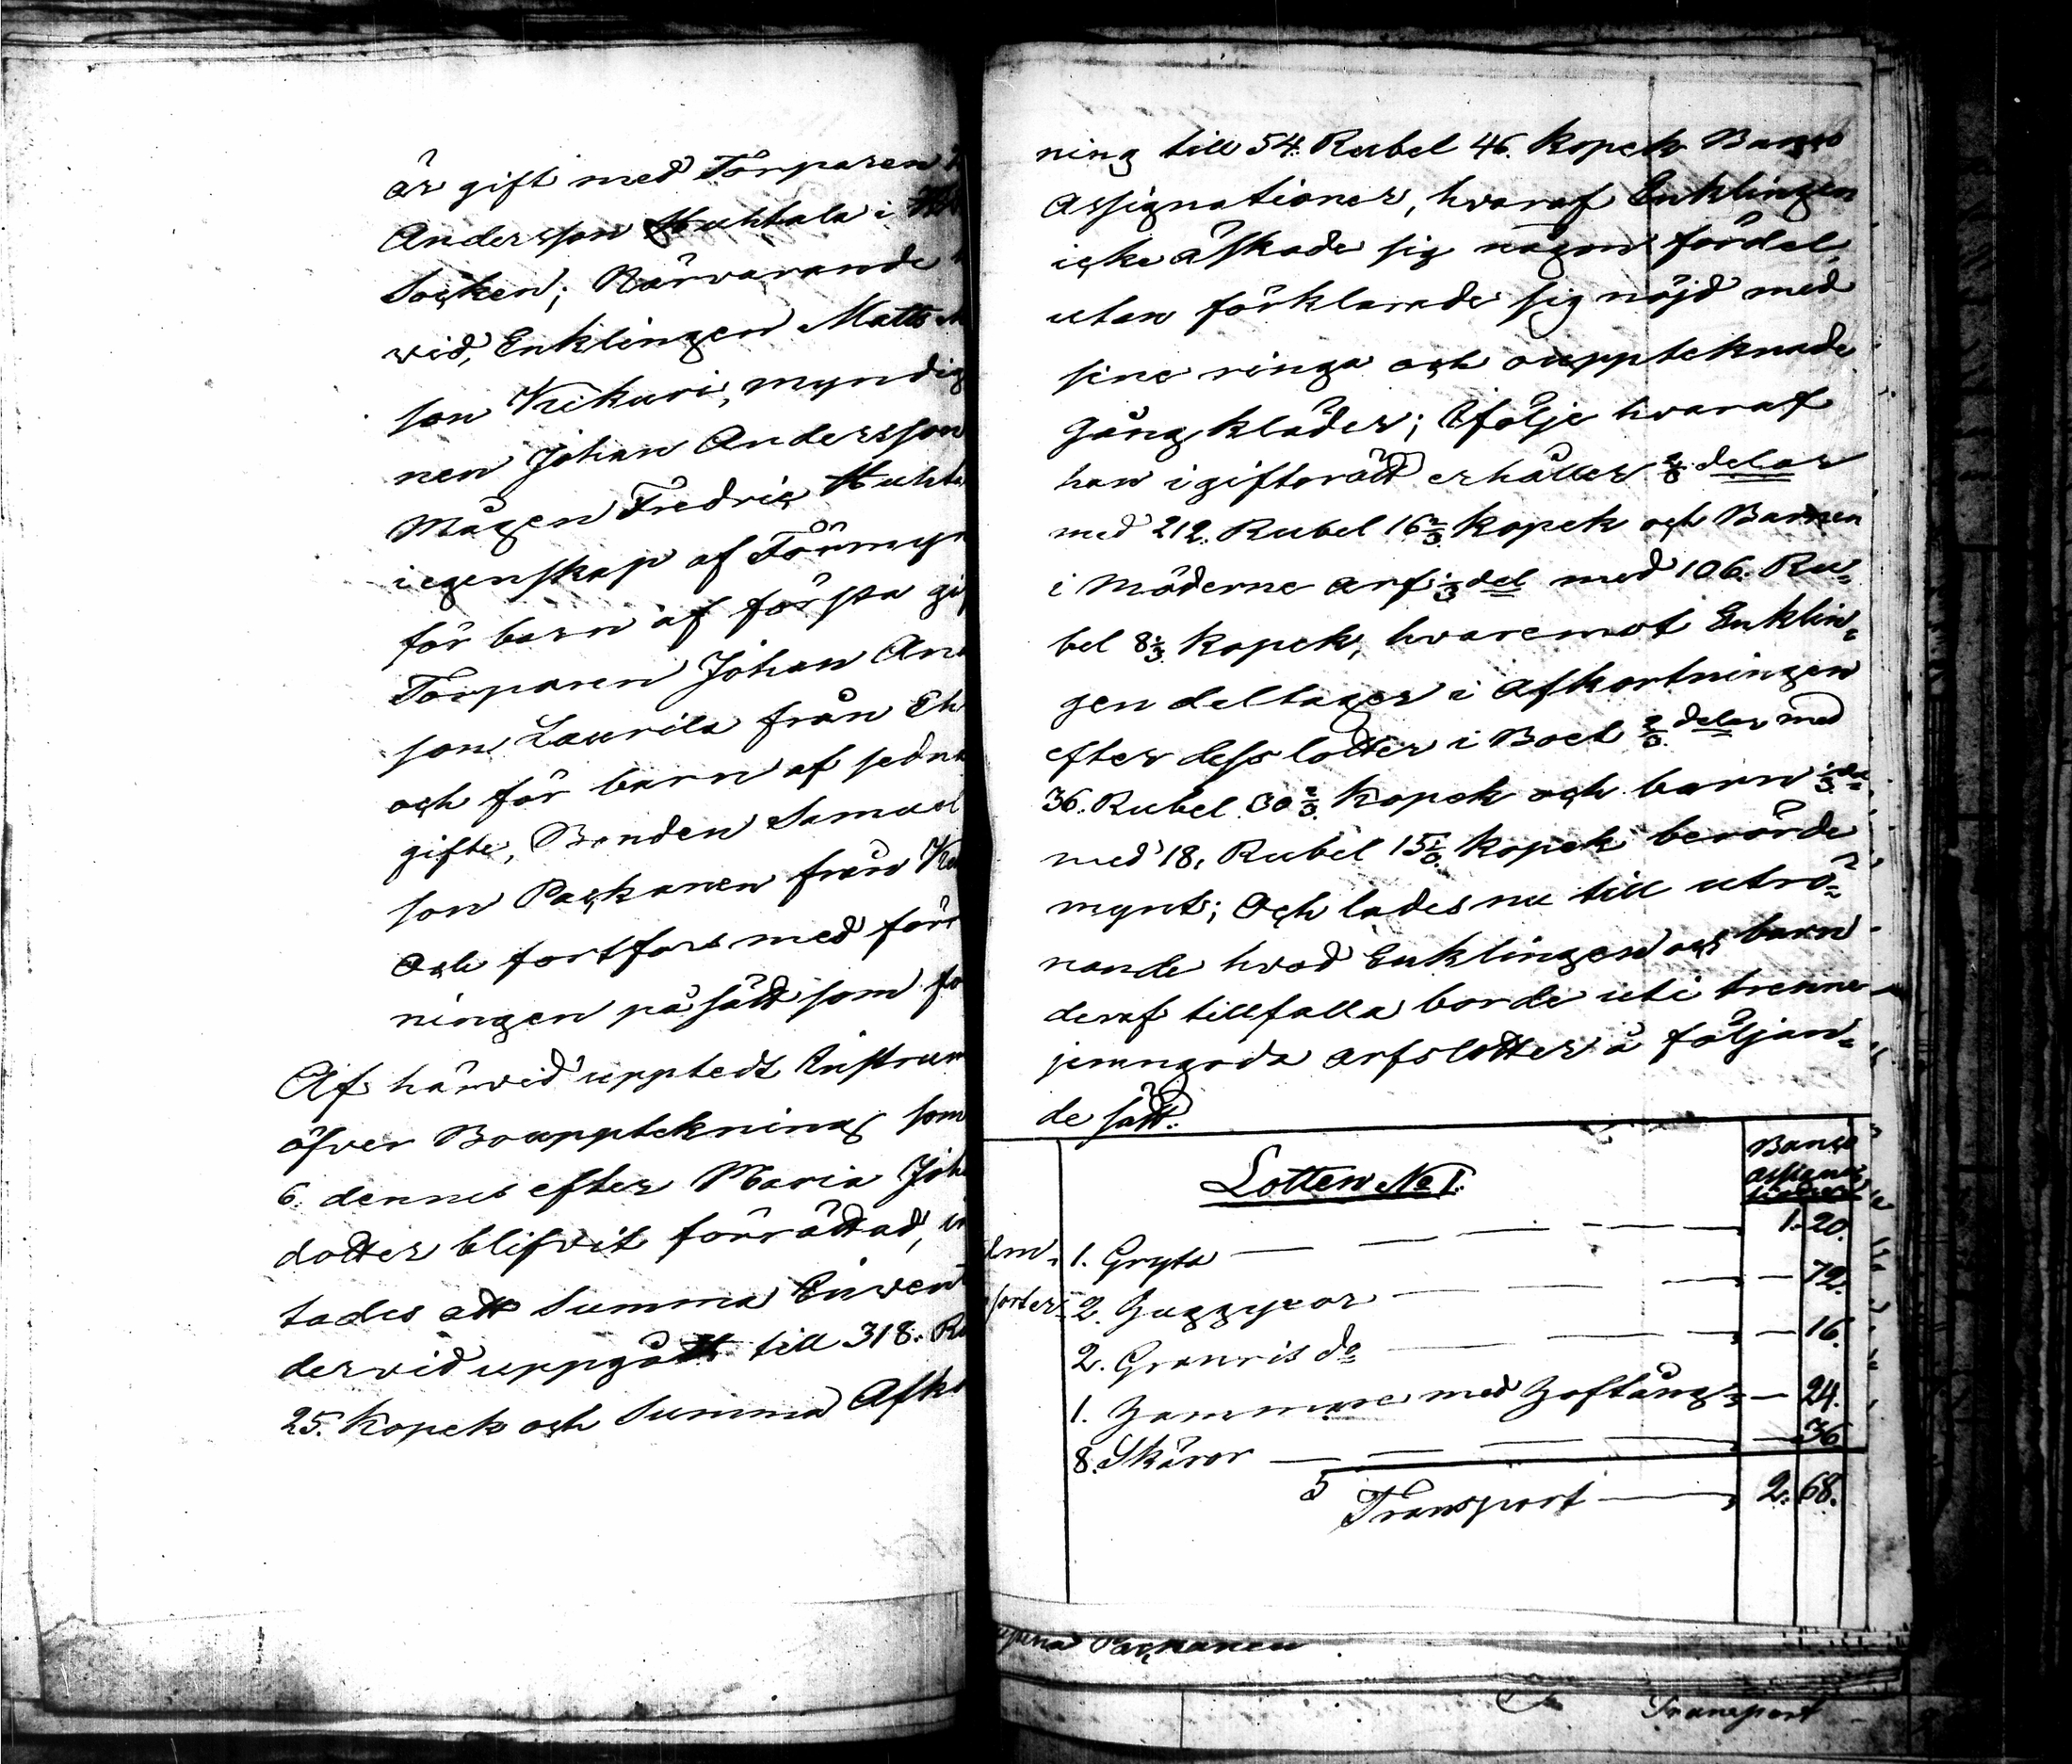 är gift med Torparen
Andersson Huhtala i
Socken; Närvarande
vid, Enklingen Matts
son Kiikuri, myndig
nen Johan Andersson
Mågen Fredric Huhta
i egenskap af Förmyn
för barn af första gif
Torparen Johan And
son Laurila från
och för barn af sedna
gifte, Bonden Samuel
son Packanen från
Och fortfors med förr
ningen på sätt som fö
Af härvid upptedt Instrum
öfver Bouppteckning som
6. dennes efter Maria Joh
dotter blifvit förrättad,
tades att Summa Inven
dervid uppgått till 318. Ru
25. Kopek och Summa Afko
ning till 54. Rubel 46. Kopek Banco
Assignationer, hvaraf Enklingen
icke äskade sig någon fördel,
utan förklarade sig nöjd med
sine ringa och ouppteknade
Gång kläder; Ifölje hvaraf
han i giftorätt erhåller 2/3 delar
med 212. Rubel 16 2/3 Kopek och Barnen
i Möderne arf 1/3 del med 106. Ru=
bel 8 1/3 Kopek, hvaremot Enklin=
gen deltager i Afkortningen
efter dess lotter i Boet 2/3 delar med
36. Rubel 30 2/3 Kopek och barn 1/3 del
med 18. Rubel 15 1/3 Kopek berörde
mynt; Och lades nu till utrö=
nande hvad Enklingen och barn
deraf tillfalla borde uti trenne
jemngoda arfslotter å följan=
de sätt.
Lotten No I. Banco Assignationer
1. Gryta 1. 20.
2. Huggyxor 72.
2. Granris do 16.
1. Hammare med Hoftång 24.
8. Skäror 36
Transport 2. 68.
Packanen
Transport